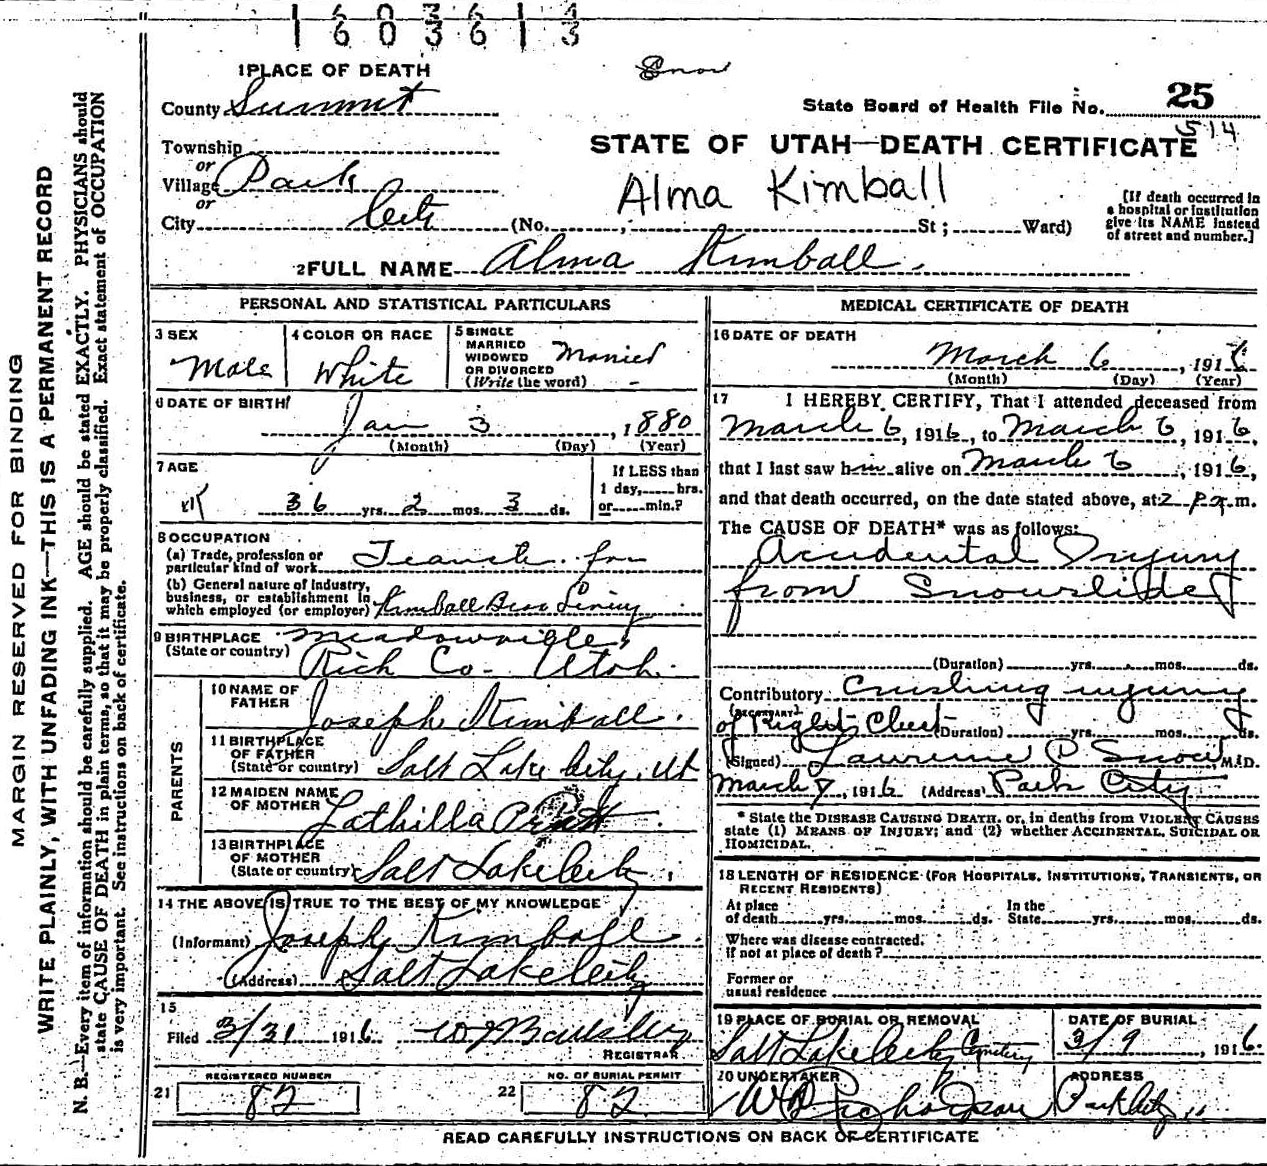 1 6 0 3 6 1 3
1 PLACE OF DEATH
Snow
County Summit
State Board of Health File No. 25
514
Township
STATE OF UTAH—DEATH CERTIFICATE
or
Village Park
Alma Kimball
or
City City (No. , St ; Ward)
[If death occurred in
a hospital or institution
give its NAME instead
of street and number.]
2 FULL NAME Alma Kimball.
PERSONAL AND STATISTICAL PARTICULARS
3 SEX
Male
4 COLOR OR RACE
White
5 SINGLE
MARRIED
WIDOWED
OR DIVORCED
(Write the word)
Married
6 DATE OF BIRTH
Jan 3, 1880
(Month) (Day) (Year)
7 AGE
36 yrs. 2 mos. 3 ds.
If LESS than
1 day, hrs.
or min.?
8 OCCUPATION
(a) Trade, profession or
particular kind of work for
(b) General nature of industry,
business, or establishment in
which employed (or employer) Kimball Bros
9 BIRTHPLACE
(State or country)
Rich Co- Utah.
PARENTS
10 NAME OF
FATHER
Joseph Kimball.
11 BIRTHPLACE
OF FATHER
(State or country) Salt Lake City, Ut
12 MAIDEN NAME
OF MOTHER
Lathilla Pratt.
13 BIRTHPLACE
OF MOTHER
(State or country) Salt Lake City,
14 THE ABOVE IS TRUE TO THE BEST OF MY KNOWLEDGE
(Informant) Joseph Kimball.
(Address) Salt Lake City
15
Filed 3/31 1916
REGISTRAR
REGISTERED NUMBER
21 82
NO. OF BURIAL PERMIT
22 82
MEDICAL CERTIFICATE OF DEATH
16 DATE OF DEATH
March 6, 1916
(Month) (Day) (Year)
17 I HEREBY CERTIFY, That I attended deceased from
March 6, 1916, to March 6, 1916,
that I last saw him alive on March 6, 1916,
and that death occurred, on the date stated above, at 2 P. m.
The CAUSE OF DEATH* was as follows:
Accidental Injury
from Snowslide
(Duration) yrs. mos. ds.
Contributory Crushing injury
(SECONDARY)
of Right Chest (Duration) yrs. mos. ds.
(Signed) Lawrence P Snow, M.D.
March 7, 1916 (Address) Park City
* State the DISEASE CAUSING DEATH, or, in deaths from VIOLENT CAUSES
state (1) MEANS OF INJURY; and (2) whether ACCIDENTAL, SUICIDAL OR
HOMICIDAL.
18 LENGTH OF RESIDENCE (FOR HOSPITALS, INSTITUTIONS, TRANSIENTS, OR
RECENT RESIDENTS)
At place
of death yrs. mos. ds.
In the
State yrs. mos. ds.
Where was disease contracted.
if not at place of death?
Former or
usual residence
19 PLACE OF BURIAL OR REMOVAL
Salt Lake City Cemetery
DATE OF BURIAL
3/9, 1916.
20 UNDERTAKER
ADDRESS
Park City
READ CAREFULLY INSTRUCTIONS ON BACK OF CERTIFICATE
MARGIN RESERVED FOR BINDING
WRITE PLAINLY, WITH UNFADING INK—THIS IS A PERMANENT RECORD
N. B.—Every item of information should be carefully supplied. AGE should be stated EXACTLY. PHYSICIANS should
state CAUSE OF DEATH in plain terms, so that it may be properly classified. Exact statement of OCCUPATION
is very important. See instructions on back of certificate.